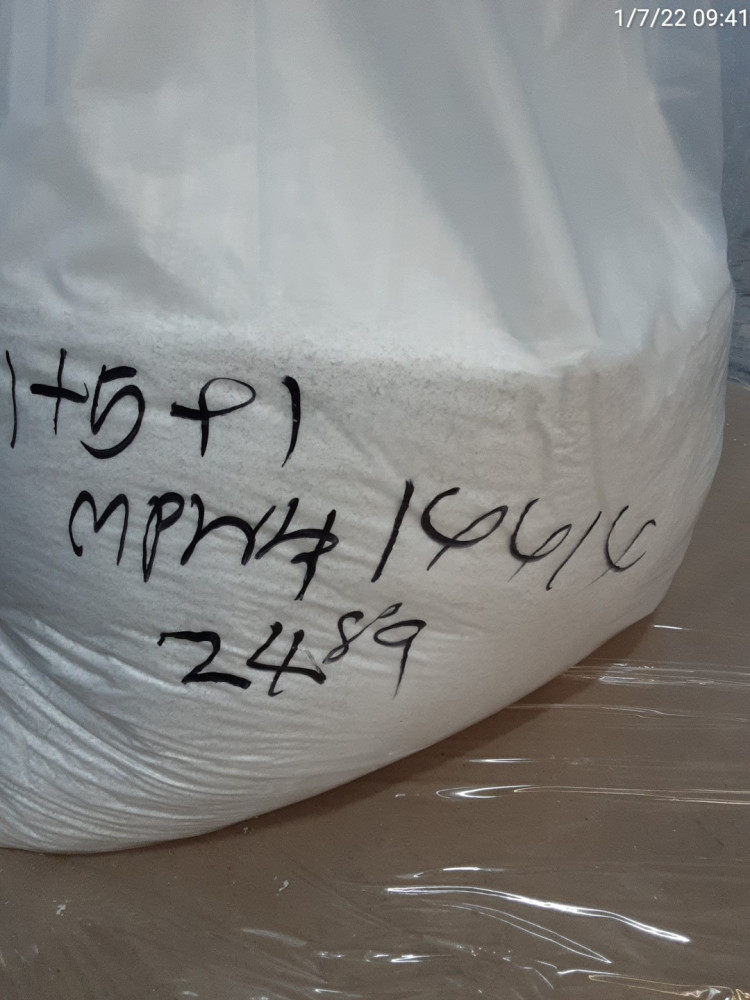 1/7/22 09:41
1+5+1
MPW4 166/6
2489